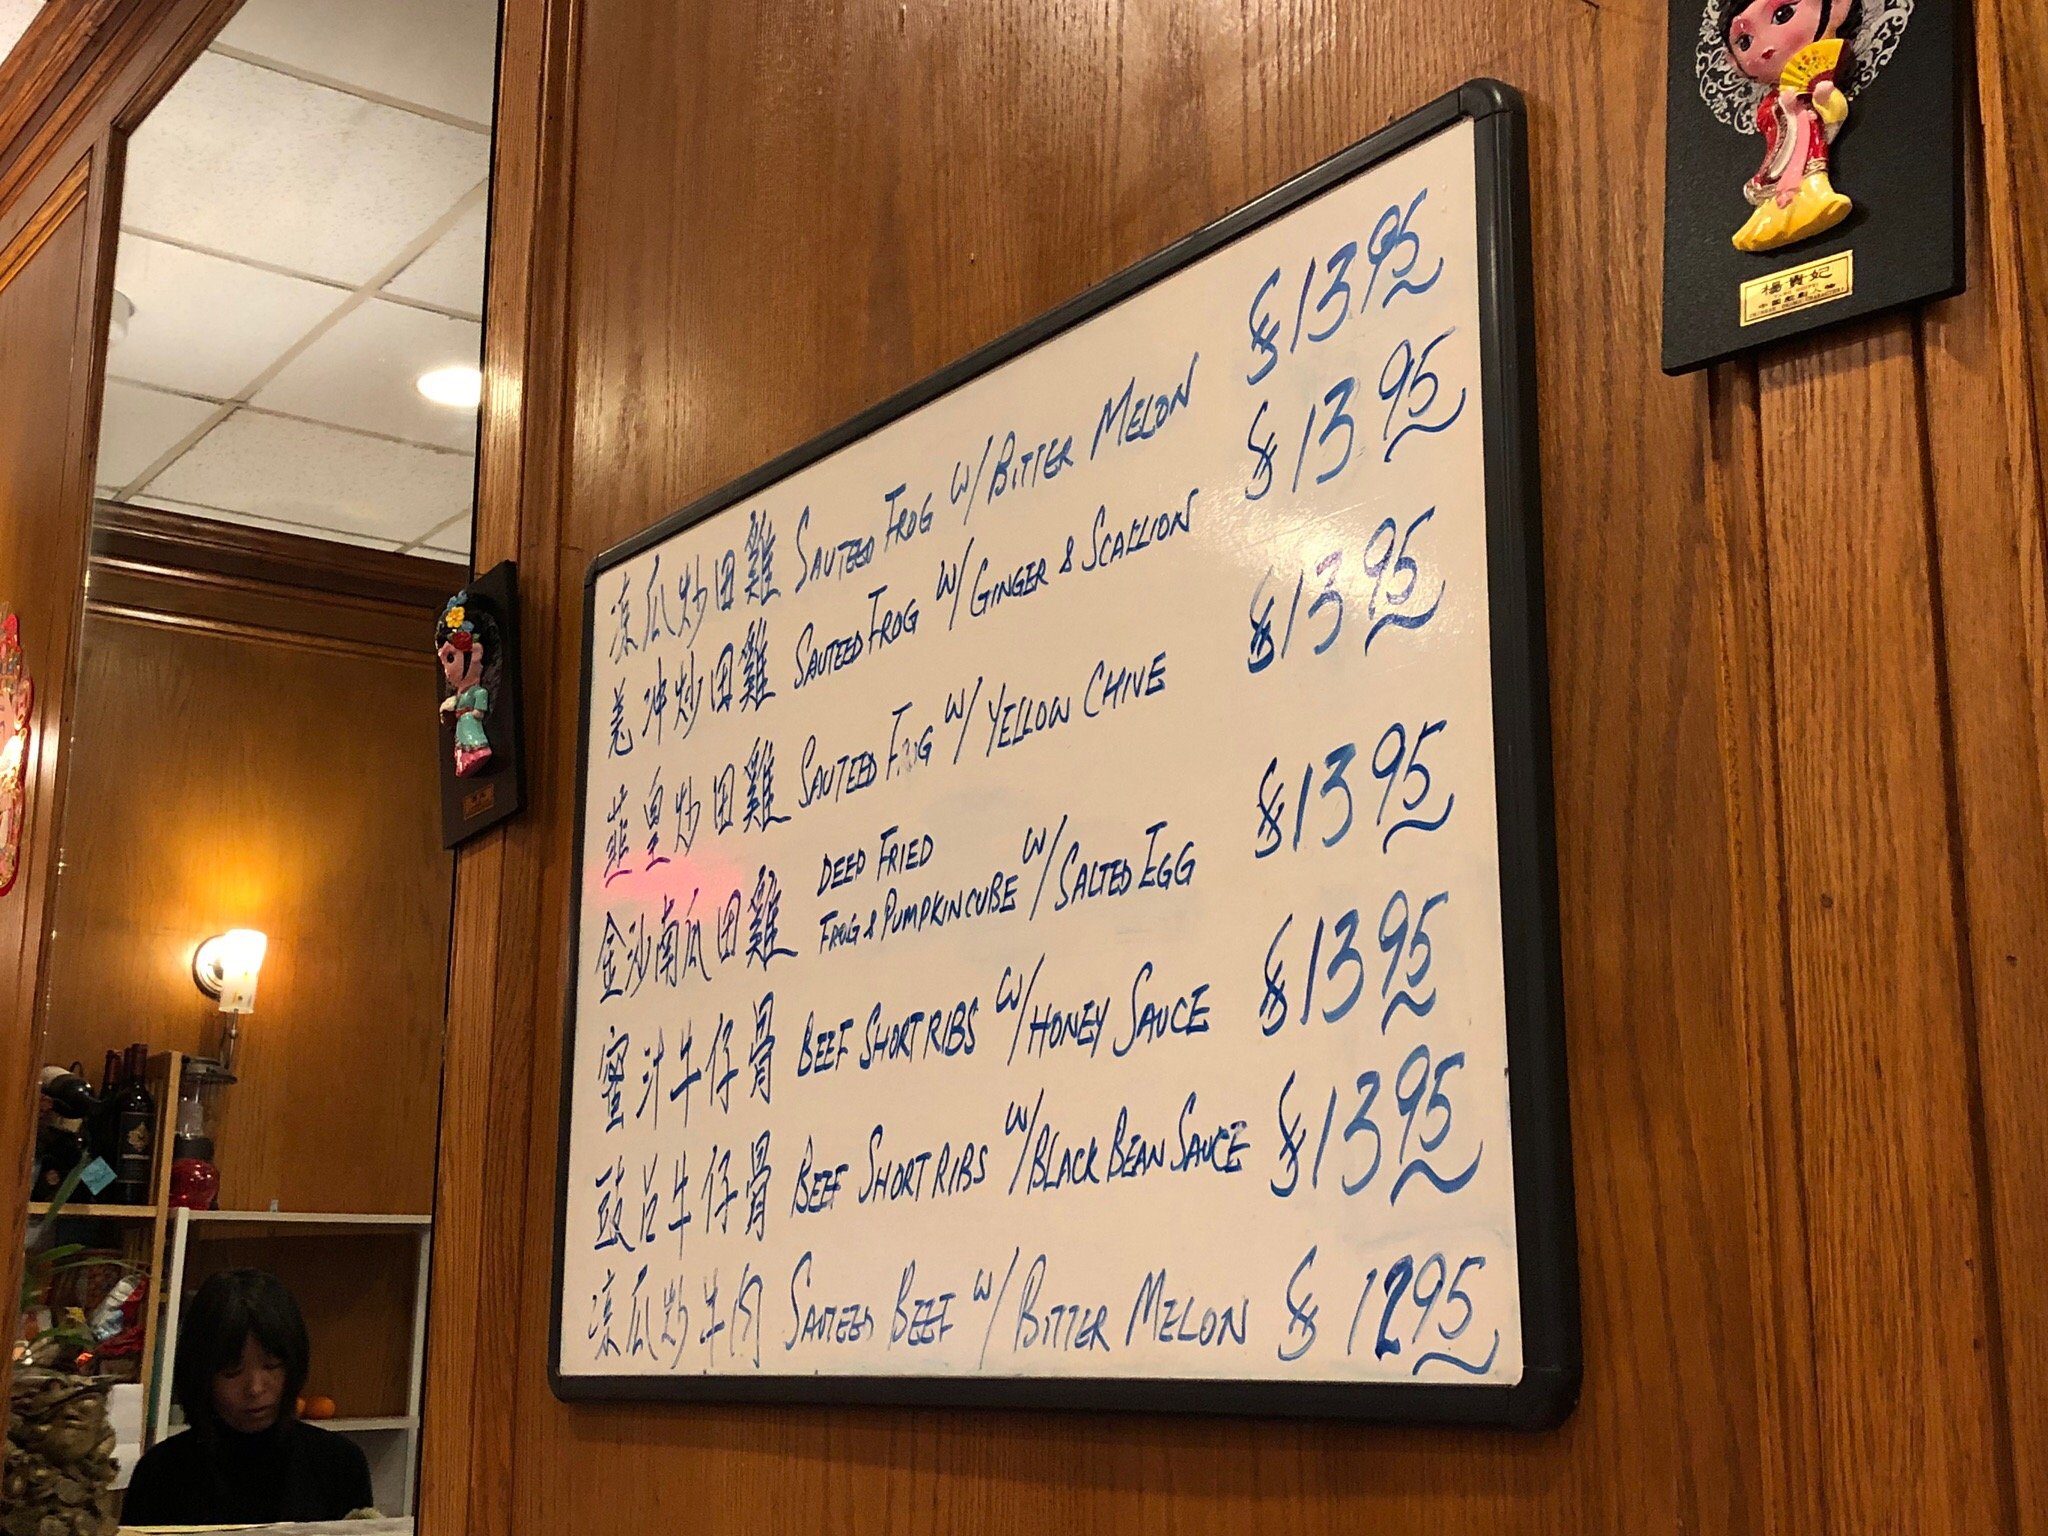 涼瓜炒田雞 SAUTEED FROG W/ BITTER MELON $13.95
羗冲炒田雞 SAUTEED FROG W/ GINGER & SCALLION $13.95
韮皇炒田雞 SAUTEED FROG W/ YELLOW CHIVE $13.95
金沙南瓜田雞 DEEP FRIED
FROG & PUMPKIN CUBE W/ SALTED EGG $13.95
蜜汁牛仔骨 BEEF SHORT RIBS W/ HONEY SAUCE $13.95
豉占牛仔骨 BEEF SHORT RIBS W/ BLACK BEAN SAUCE $13.95
涼瓜炒牛肉 SAUTEED BEEF W/ BITTER MELON $12.95
楊貴妃
中国戲劇人物